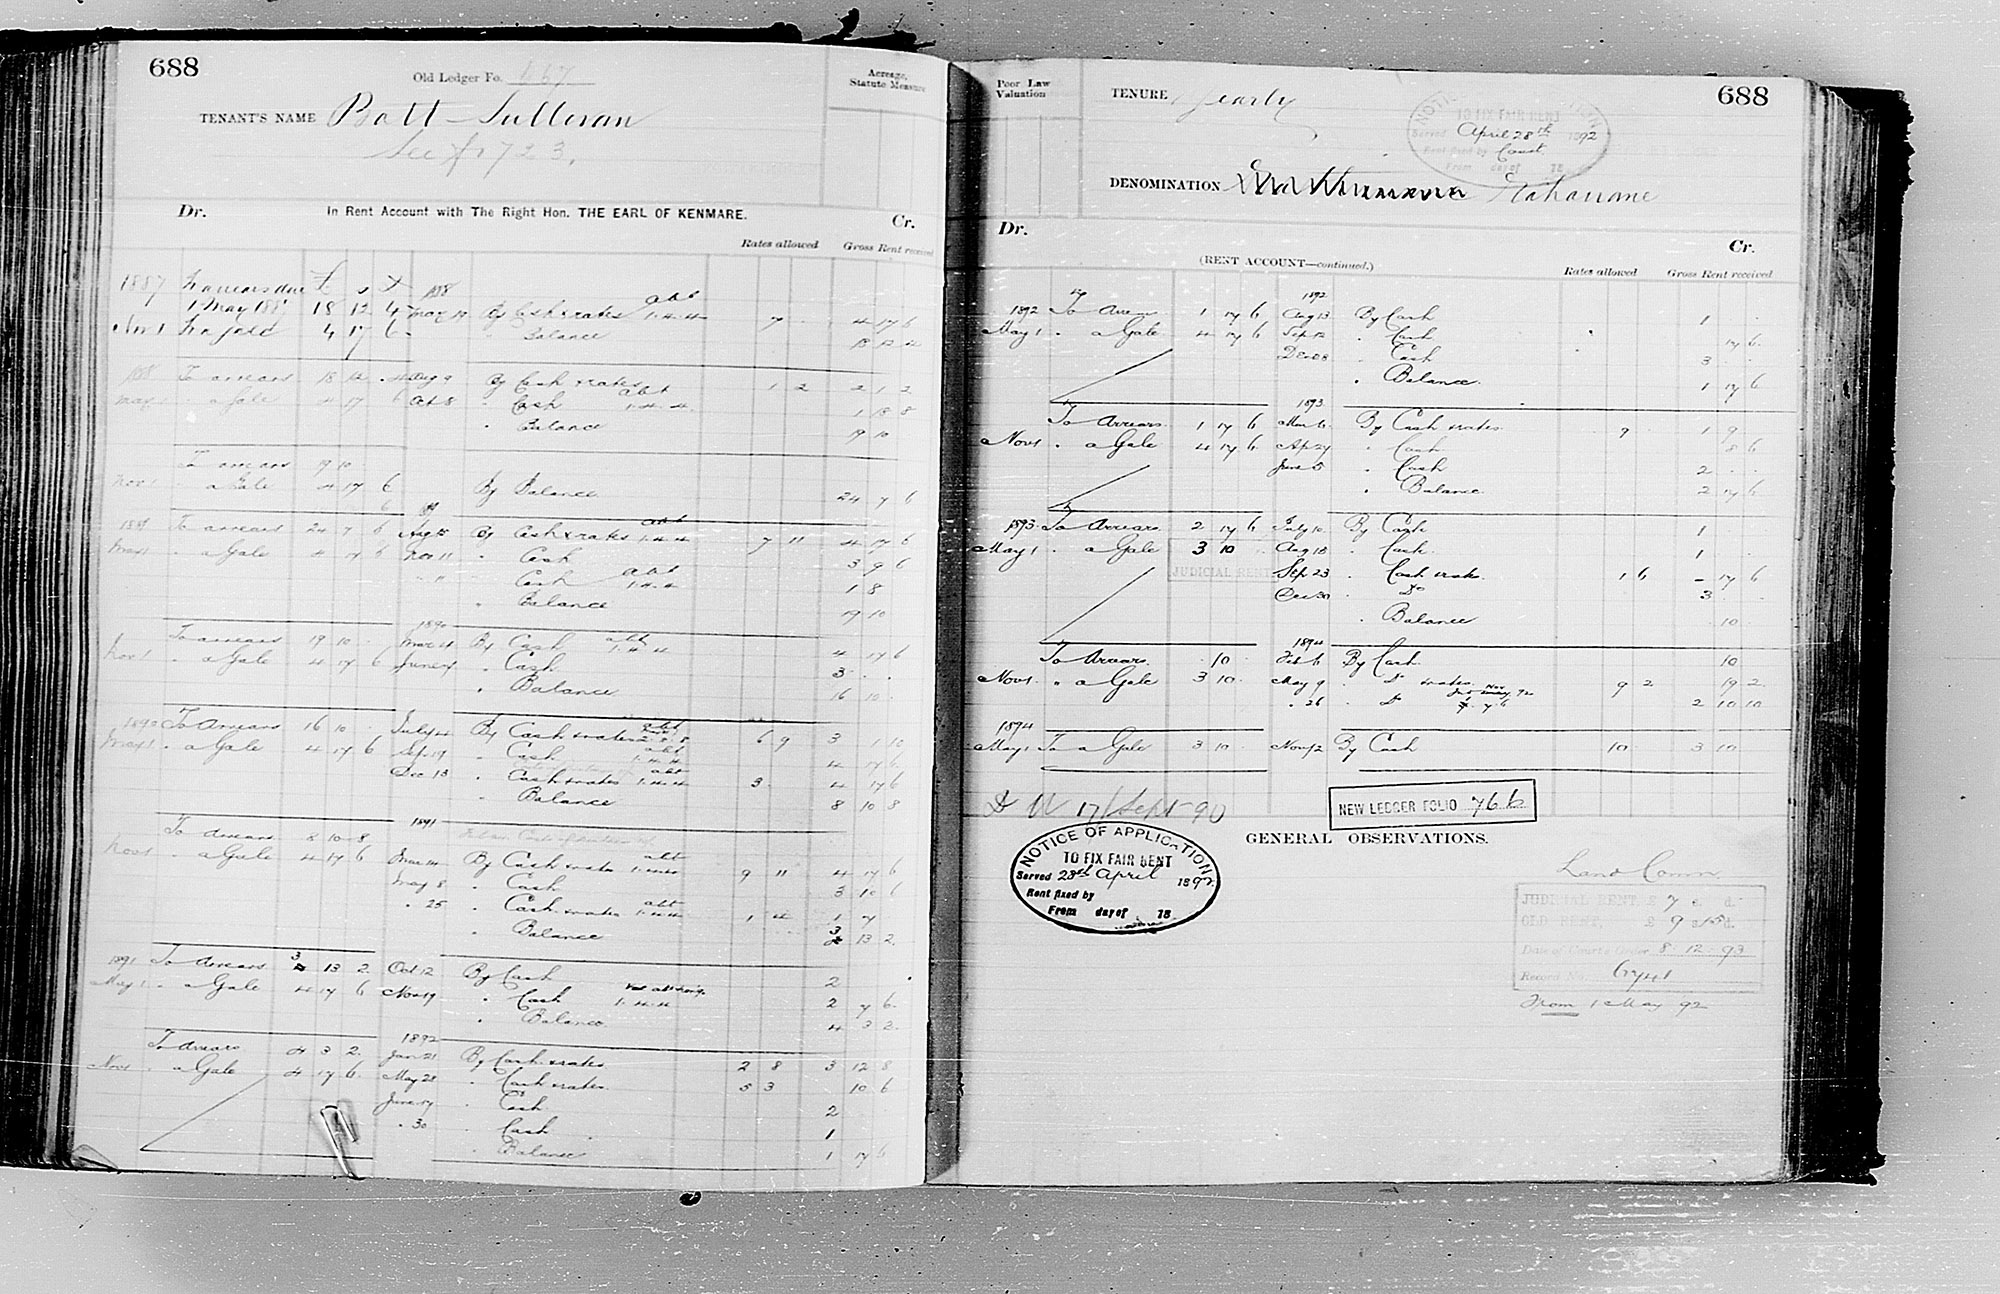 688
Old Ledger Fo. 667
Acreage, Statute Measure
TENANT'S NAME Batt Sullivan
See fo 723.
Dr. In Rent Account with The Right Hon. THE EARL OF KENMARE. Cr.
Rates allowed Gross Rent received
1887 To arrears due £ s d 1888
1 May 1887 18 12 4 By Cash & rates abt 1.4.4 7 4 17 6
Nov 1 4 17 6 Balance 18 12 4
1888 To arrears 18 12 4 Aug 9 By Cash & rates 1 2 2 1 2
May 1 " a Gale 4 17 6 Oct 8 " Cash abt 1.4.4 1 18 8
" Balance 19 10
To arrears 19 10
Nov 1 " a Gale 4 17 6 By Balance 24 7 6
1889 To arrears 24 7 6 Aug 15 By Cash & rates abt 1.4.4 7 11 4 17 6
May 1 " a Gale 4 17 6 Nov 11 " Cash 3 9 6
" " Cash abt 1.4.4 1 8
" Balance 19 10
1890
To arrears 19 10 Mar 4 By Cash abt 1.4.4 4 17 6
Nov 1 " a Gale 4 17 6 June 4 " Cash 3 . .
" Balance 16 10
1890 To Arrears 16 10 July 4 By Cash & rates abt 6 9 3 1 10
May 1 " a Gale 4 17 6 Sep 19 " Cash abt 1.4.4 4 17 6
Dec 13 " Cash & rates abt 1.4.4 3 4 17 6
" Balance 8 10 8
1891
To Arrears 8 10 8
Nov 1 " a Gale 4 17 6 Mar By Cash & rates abt 9 11 4 17 6
May 8 " Cash 3 10 6
" 25 " Cash & rates abt 1.4.4 1 4 1 7
" Balance 3 13 2
1891 To Arrears 3 13 2 Oct 12 By Cash 2
May 1 " a Gale 4 17 6 Nov 19 " Cash 1.4.4 2 7 6
" Balance 4 3 2
1892
To Arrears 4 3 2 Jan 21 By Cash & rates 2 8 3 12 8
Nov 1 " a Gale 4 17 6 May 28 " Cash & rates 5 3 10 6
June 17 " Cash 2
" 30 " Cash 1
" Balance 1 17 6
Poor Law Valuation
TENURE Yearly
688
NOTICE OF APPLICATION
TO FIX FAIR RENT
Served April 28th 1892
Rent fixed by Court
From day of 18
DENOMINATION
Dr. Cr.
(RENT ACCOUNT—continued.)
Rates allowed Gross Rent received
1892
1892 To Arrears 1 17 6 Aug 13 By Cash 1 . .
May 1 " a Gale 4 17 6 Sep 12 " Cash 17 6
Dec 28 " Cash 3
" Balance 1 17 6
1893
To Arrears 1 17 6 Mar 6 By Cash & rates 9 1 9
Nov 1 " a Gale 4 17 6 Ap 27 " Cash 8 6
June 5 " Cash 2 . .
" Balance 2 17 6
1893 To Arrears 2 17 6 July 10 By Cash 1
May 1 " a Gale 3 10 Aug 18 " Cash 1
JUDICIAL RENT Sep 23 " Cash & rates 1 6 – 17 6
Dec 30 " Do 3
" Balance 10
1894
To Arrears 10 Feb 6 By Cash 10
Nov 1 " a Gale 3 10 May 9 " Do & rates 9 2 19 2
" 26 " Do 2 10 10
1894
May 1 To a Gale 3 10 Nov 12 By Cash 10 3 10
17/Sept 90
NEW LEDGER FOLIO 766
GENERAL OBSERVATIONS.
NOTICE OF APPLICATION
TO FIX FAIR RENT
Served 28th April 1892
Rent fixed by
From day of 18
Land Comn.
JUDICIAL RENT, £ 7 s. d.
OLD RENT, £ 9 s 15 d.
Date of Court's Order 8-12-93
Record No. 6741
From 1 May 92